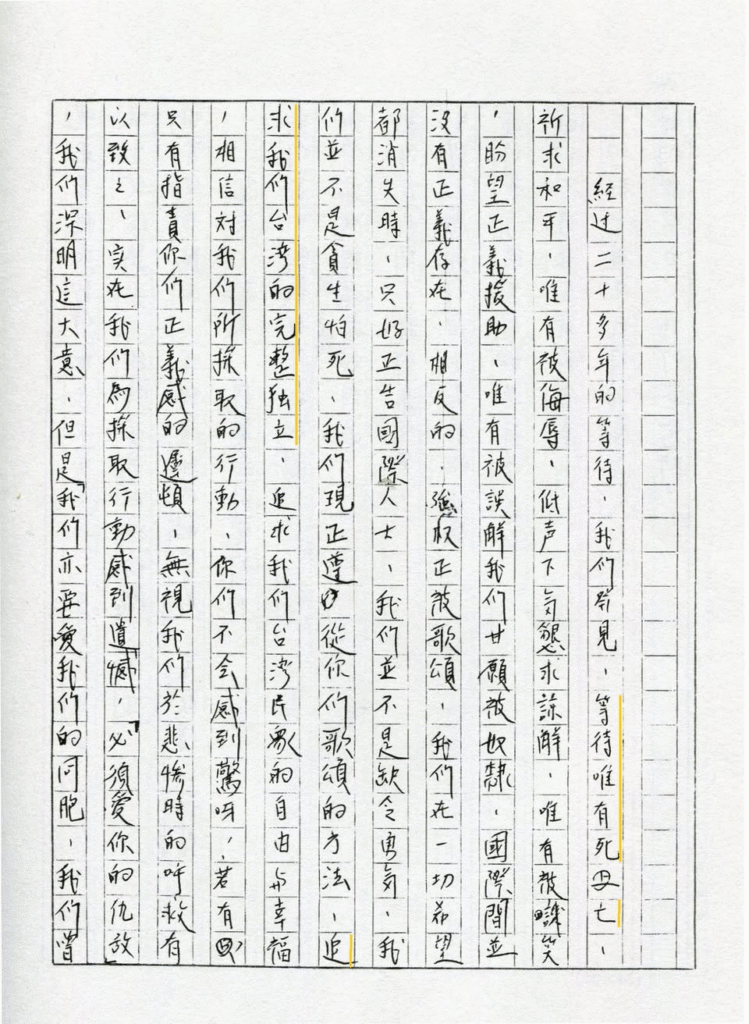 經过二十多年的等待，我们發見，等待唯有死亡，
祈求和平，唯有被侮辱，低声下気懇求諒解，唯有被譏笑
，盼望正義援助，唯有被誤解我们甘願被奴隸，國際間並
没有正義存在，相反的，強权正被歌頌，我们在一切希望
都消失時，只好正告國際人士，我们並不是缺乏勇気，我
们並不是貪生怕死，我们現正遵從你们歌頌的方法，追
求我们台湾的完整独立，追求我们台湾民衆的自由与幸福
，相信对我们所採取的行動，你们不会感到驚呀，若有
只有指責你们正義感的遲頓，無視我们於悲惨時的呼救有
以致之，实在我们為採取行動感到遺憾，「必須愛你的仇敌
，我们深明這大意，但是我们亦要愛我们的同胞，我们曾